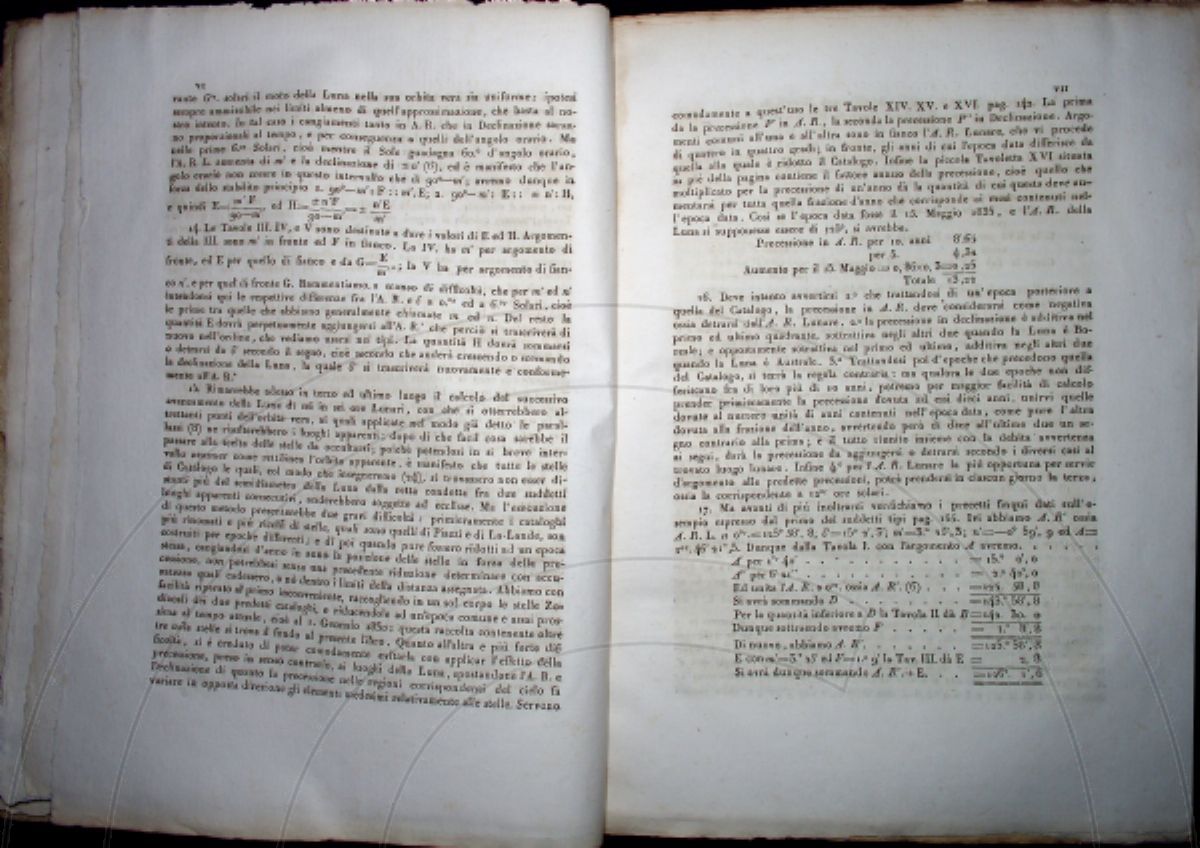 VI
rante 6.ore solari il moto della Luna nella sua orbita vera sia uniforme; ipotesi
sempre ammissibile nei limiti almeno di quell'approssimazione, che basta al no-
stro intento. In tal caso i cangiamenti tanto in A. R. che in Declinazione saran-
no proporzionali al tempo, e per conseguenza a quelli dell'angolo orario. Ma
nelle prime 6.ore Solari, cioè mentre il Sole guadagna 90.° d'angolo orario,
l'A. R. L. aumenta di m' e la declinazione di ± n' (6), ed è manifesto che l'an-
golo cresce non meno in questo intervallo che di 90°—m'; avremo dunque in
forza dello stabilito principio 1. 90°—m': F :: m', E; 2. 90°—m': E :: ± n': H,
e quindi E=m'F/90—m' ed H=±n'F/90—m'=±n'E/m'
14. Le Tavole III. IV. e V sono destinate a dare i valori di E ed H. Argomen-
ti della III. sono m' in fronte ed F in fianco. La IV. ha m' per argomento di
fronte, ed E per quello di fianco e da G=E/m'; la V ha per argomento di fian-
co n', e per quel di fronte G. Rammentiamo, a scanso di difficoltà, che per m' ed n'
intendonsi qui le respettive differenze fra l'A. R. e δ a 0.ore ed a 6.ore Solari, cioè
le prime tra quelle che abbiamo generalmente chiamate m ed n. Del resto la
quantità E dovrà perpetuamente aggiungersi all'A. R.' che perciò si trascriverà di
nuovo nell'ordine, che vediamo usato nei tipi. La quantità H dovrà sommarsi
o detrarsi da δ' secondo il segno, cioè secondo che anderà crescendo o scemando
la declinazione della Luna, la quale δ' si trascriverà nuovamente e conforme-
mente all'A. R.'
15. Rimarrebbe adesso in terzo ed ultimo luogo il calcolo del successivo
avanzamento della Luna di sei in sei ore Lunari, con che si otterrebbero al-
trettanti punti dell'orbita vera, ai quali applicate nel modo già detto le paral-
lassi (8) ne risulterebbero i luoghi apparenti; dopo di che facil cosa sarebbe il
passare alla scelta delle stelle da occultarsi; poichè potendosi in sì breve inter-
vallo assumer come rettilinea l'orbita apparente, è manifesto che tutte le stelle
di Catalogo le quali, col modo che insegneremo (24), si trovassero non esser di-
stanti più del semidiametro della Luna dalla retta condotta fra due suddetti
luoghi apparenti consecutivi, anderebbero soggette ad ecclisse. Ma l'esecuzione
di questo metodo presenterebbe due gravi difficoltà: primieramente i cataloghi
più rinomati e più ricchi di stelle, quali sono quelli di Piazzi e di La-Lande, son
costruiti per epoche differenti; e di poi quando pure fossero ridotti ad un epoca
stessa, cangiandosi d'anno in anno la posizione delle stelle in forza della pre-
cessione, non potrebbesi senza una precedente riduzione determinare con accu-
ratezza quali cadessero, o nò dentro i limiti della distanza assegnata. Abbiamo con
facilità riparato al primo inconveniente, raccogliendo in un sol corpo le stelle Zo-
diacali dei due predetti cataloghi, e riducendole ad un'epoca comune e assai pros-
sima al tempo attuale, cioè al 1. Gennaio 1830: questa raccolta contenente oltre
tre mila stelle si trova in fondo al presente libro. Quanto all'altra e più forte dif-
ficoltà, si è creduto di poter comodamente evitarla con applicar l'effetto della
precessione, preso in senso contrario, ai luoghi della Luna, spostandone l'A. R. e
Declinazione di quanto la precessione nelle regioni corrispondenti del cielo fa
variare in opposta direzione gli elementi medesimi relativamente alle stelle. Servono
VII
comodamente a quest'uso le tre Tavole XIV. XV. e XVI. pag. 142. La prima
da la precessione P in A. R., la seconda la precessione P' in Declinazione. Argo-
menti comuni all'uno e all'altra sono in fianco l'A. R. Lunare, che vi procede
di quattro in quattro gradi; in fronte, gli anni di cui l'epoca data differisce da
quella alla quale è ridotto il Catalogo. Infine la piccola Tavoletta XVI situata
a piè della pagina contiene il fattore annuo della precessione, cioè quello che
moltiplicato per la precessione di un'anno dà la quantità di cui questa deve au-
mentarsi per tutta quella frazione d'anno che corrisponde ai mesi contenuti nel-
l'epoca data. Così se l'epoca data fosse il 15. Maggio 1825, e l'A. R. della
Luna si supponesse essere di 128°, si avrebbe.
Precessione in A. R. per 10. anni 8'.63
per 5. 4,32
Totale
16. Deve intanto avvertirsi 1.° che trattandosi di un'epoca posteriore a
quella del Catalogo, la precessione in A. R. deve considerarsi come negativa
ossia detrarsi dall'A. R. Lunare. 2.° la precessione in declinazione è additiva nel
primo ed ultimo quadrante, sottrattiva negli altri due quando la Luna è Bo-
reale; e oppostamente sottrattiva nel primo ed ultimo, additiva negli altri due
quando la Luna è Australe. 3.° Trattandosi poi d'epoche che precedono quella
del Catalogo, si terrà la regola contraria: ma qualora le due epoche non dif-
feriscano fra di loro più di 10 anni, potremo per maggior facilità di calcolo
prender primieramente la precessione dovuta ad essi dieci anni, unirvi quelle
dovute al numero unità di anni contenuti nell'epoca data, come pure l'altra
dovuta alla frazione dell'anno, avvertendo però di dare all'ultime due un se-
gno contrario alla prima; e il tutto riunito insieme con la debita avvertenza
ai segni, darà la precessione da aggiungersi o detrarsi secondo i diversi casi al
trovato luogo lunare. Infine 4.° per l'A. R. Lunare la più opportuna per servir
d'argomento alle predette precessioni, potrà prendersi in ciascun giorno la terza,
ossia la corrispondente a 12ore ore solari.
17. Ma avanti di più inoltrarsi verifichiamo i precetti finqui dati sull'e-
sempio espresso dal primo dei suddetti tipi pag. 155. Ivi abbiamo A. R' ossia
Dunque dalla Tavola I. con l'argomento A avremo. . . . . .
A per
A' per
Ed unita l'A. R. a 0ore, ossia A. R.' (6) . . .
Si avrà sommando D
Per la quantità inferiore a D la Tavola II. dà B
Dunque sottraendo avremo F
Di nuovo, abbiamo A. R'.
E con m'=3.° 25' ed F=1.° 9' la Tav. III. dà E = 2, 8
Si avrà dunque sommando A. R'. + E. . . .